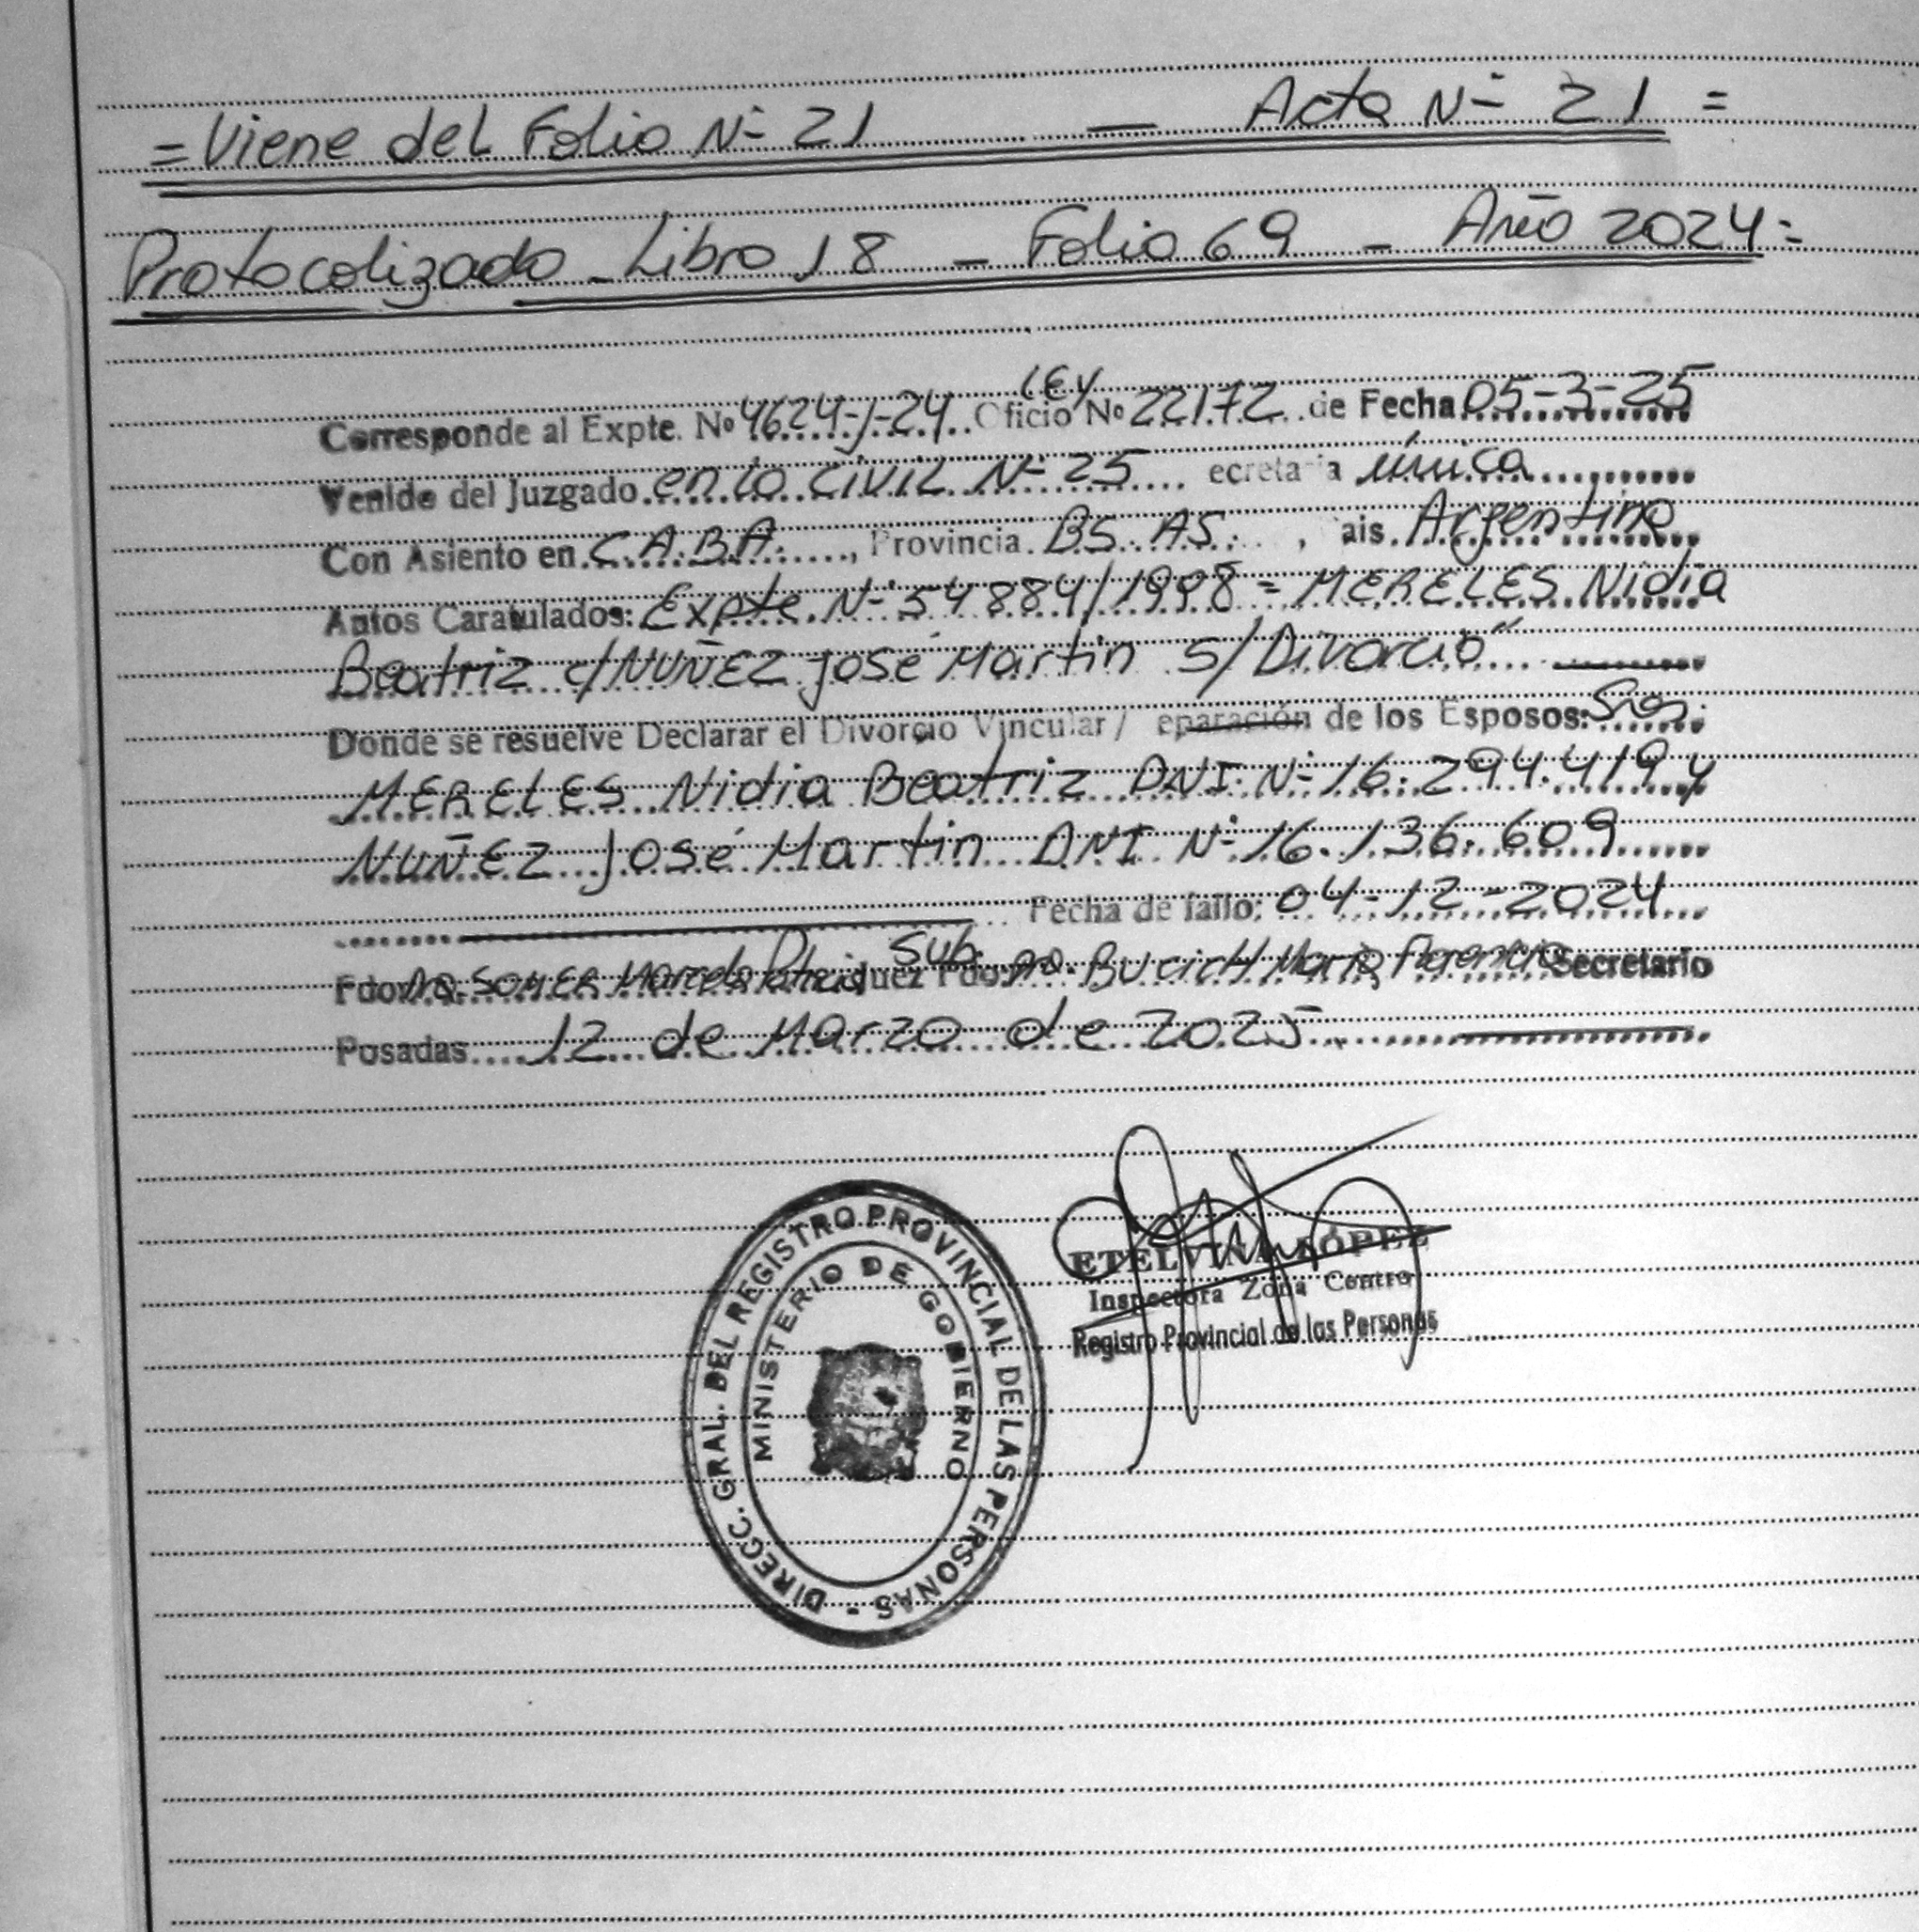 = Viene del Folio Nº 21 — Acta Nº 21 =
Protocolizado - Libro 18 - Folio 69 - Año 2024 =
LEY
Corresponde al Expte. Nº 4624-J-24 Oficio Nº 22172 de Fecha 05-3-25
Venido del Juzgado en lo civil Nº 25 ecretaria única
Con Asiento en C.A.B.A., Provincia BS. AS., ais Argentina
Autos Caratulados: Expte. Nº 54884/1998 = MERELES Nidia
Beatriz c/ NUÑEZ José Martín s/ Divorcio"
Donde se resuelve Declarar el Divorcio Vincular / eparación de los Esposos: Sres.
MERELES Nidia Beatriz DNI. Nº 16.294.419 y
NUÑEZ José Martín DNI Nº 16.136.609
Fecha de fallo: 04-12-2024
Sub
Fdo. Dra. SOMER Marcela Juez Fdo. Dra. BUCICH María Florencia Secretario
Posadas 12 de Marzo de 2025
ETELVINA LÓPEZ
Inspectora Zona Centro
Registro Provincial de las Personas
DIRECC. GRAL. DEL REGISTRO PROVINCIAL DE LAS PERSONAS -
MINISTERIO DE GOBIERNO